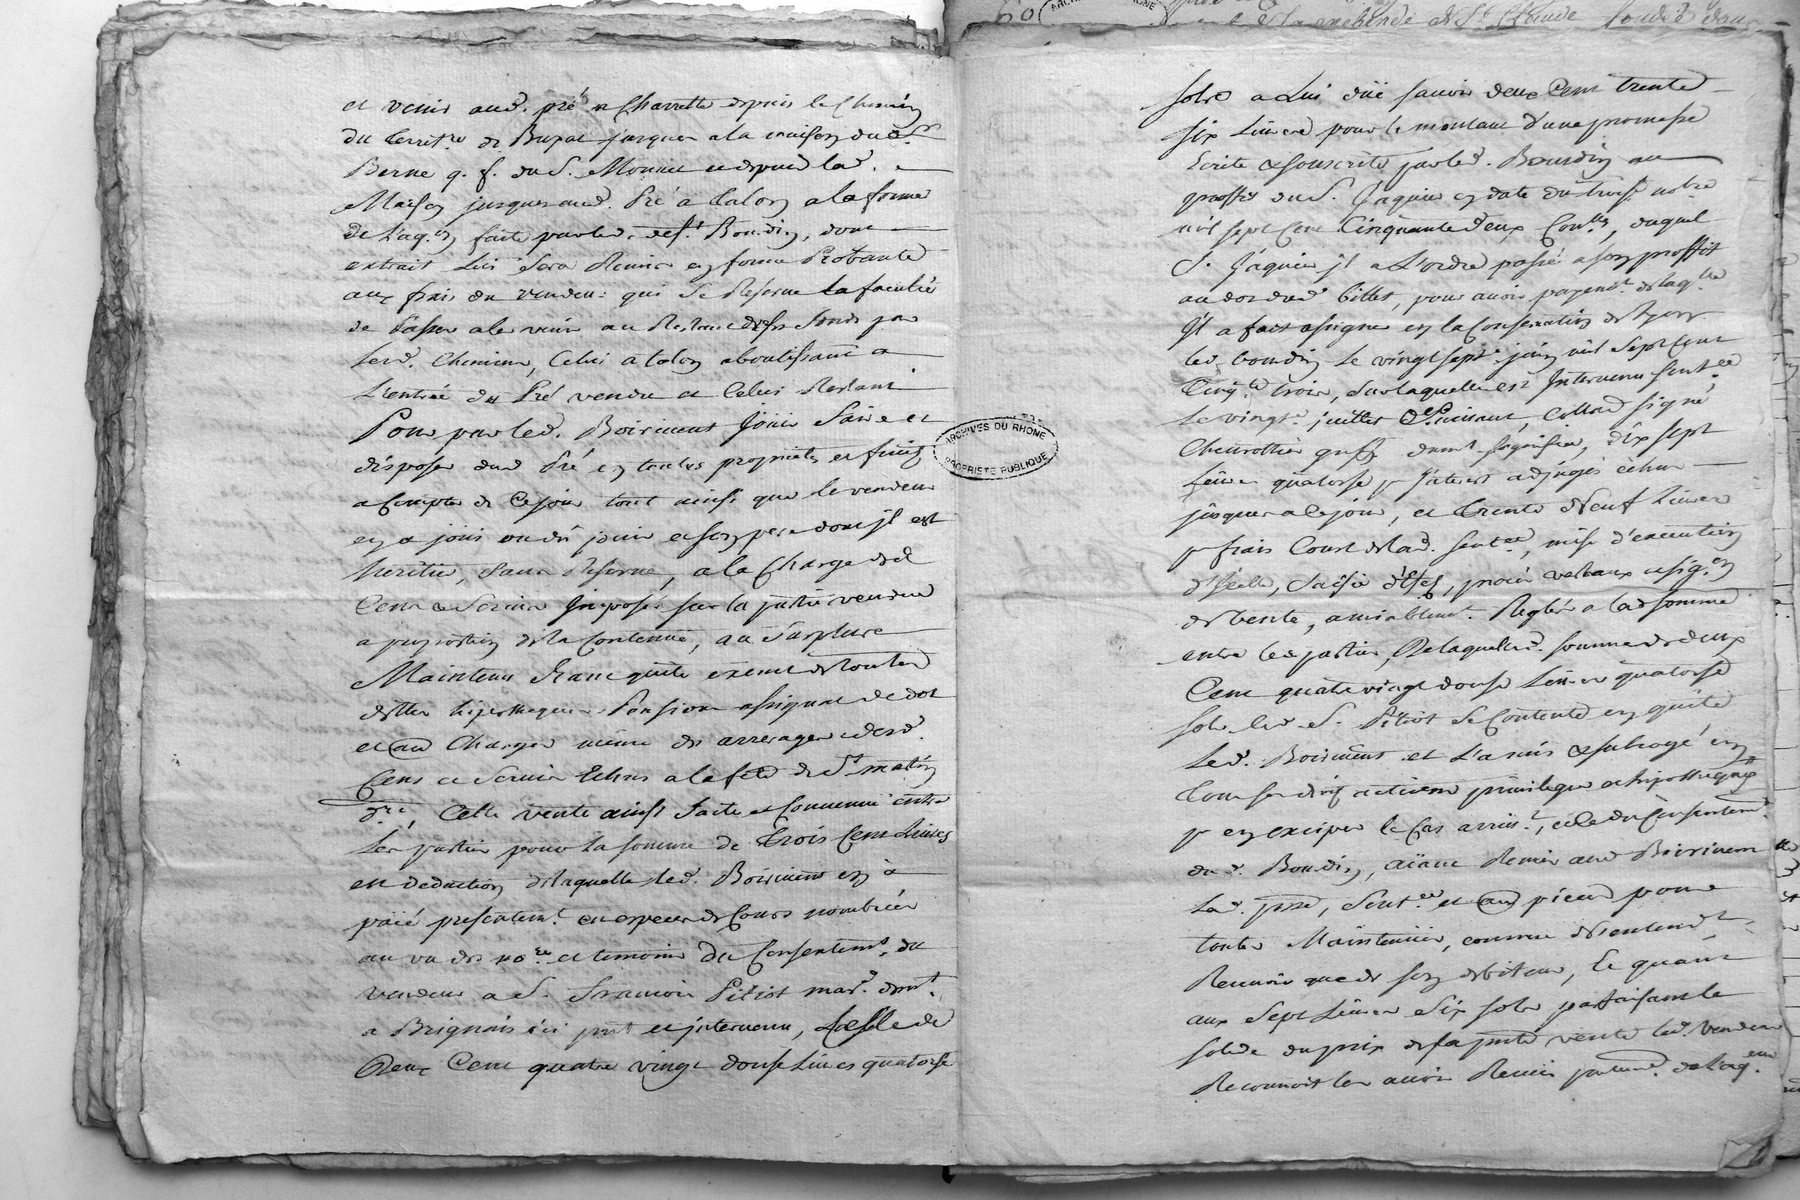 et venir aud. pré a Charrette depuis le Chemin
du territ.re de Bupat jusques a la maison dud. Sr
Berne q. f. du S. Monnet et depuis lad.
Maison jusques aud. Pré a talon a la forme
De l'aq.on faite par led. deft Bourdin, dont
extrait lui sera Remis en forme Probante
aux frais du vendeur qui se Reserve la faculté
de Passer aler venir au Restant de ses fonds par
led. Chemin, Celui a talon aboutissant a
L'entrée du Pré vendu et Celui Restant
Pour par led. Boiriment Jouir faire et
disposer dud. Pré en toutes proprietés et fruits
a Compter de Ce jour tout ainsi que le vendeur
en a joui ou dû jouir et son pere dont jl est
heritier, sans Reserve, a la Charge du
Cens et Servis Imposés sur la partie vendue
a proportion de la Contenue, au Surplus
Maintenu franc quitte exemt de toutes
dettes hipotheques Pension assignat de dot
et au Charges même des arrerages desd.
Cens et Servis Echus a la fete de St martin
d.re, Cette vente ainsi faite et Convenue entre
Les parties pour la somme de Trois Cent Livres
en deduction de laquelle led. Boiriment en a
paié presentem.t en especes de Cours nombrées
au vu des no.re et temoins du Consentem.t du
vendeur a S. francois Pitiot mar.d dem.t
a Brignais ici pnt et jntervenu, Celle de
Deux Cent quatre vingt douse Livres quatorse
sols a Lui düe savoir deux Cent trente
six Livres pour le montant d'une promesse
Ecrite & souscrite par led. Bourdin au
proffit du S. Jaquier en date du trois 9bre
mil sept Cent Cinquante deux Con.lée, duquel
S. Jaquier jl a L'ordre passé a son proffit
au dos dud. billet, pour avoir payem.t de laq.lle
Jl a fait assigner en la Conservation de Lyon
led. bourdin le vingt sept juin mil Sept Cent
Cinq.te trois, sur laquelle est Intervenu sent.ce
Le vingt juillet suivant, Collond signé
Chavrottier greff. dumt. signifiée, dix sept
Livres quatorse pr Jnterets adjugés échus
jusques a ce jour, et trente Neuf Livres
pr frais Cout de lad. sent.ce, mise d'execution
d'Icelle, Saisie d'Effets, procés verbaux assig.on
de vente, amiablem.t Reglés a lad. somme
entre les parties, De laquelle somme de deux
Cent quatre vingt douse Livres quatorse
sols led. S. Pitiot se Contente en quitte
Led. Boiriment et L'a mis & subrogé en
tous ses droits actions privileges et hipotheques
pr en exciper le Cas arriv.t, et de du Consentem.t
dud. Bourdin, aïant Remis aud. Boiriment
Lad. prsse, sent.ce et au pieces pour
toute Maintenüe, comme il s'entend
Reconnoit que de son debiteur, Et quant
aux Sept Livres Six sols parfaisant le
solde du prix de la pnte vente led. vendeur
Reconnoit les avoir Receus de Laq.eur